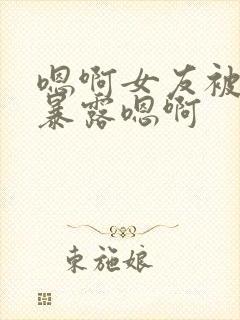 嗯啊女友被
暴露嗯啊
束施娘